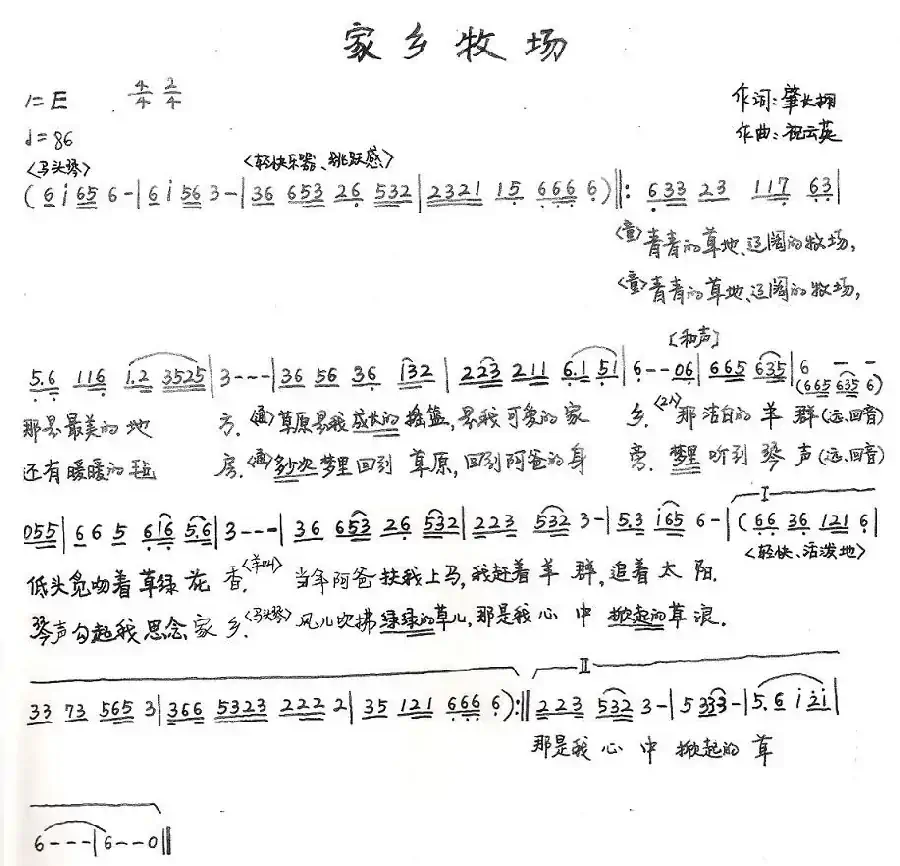 家乡牧场
1=E 4/4 2/4
作词:肇长拥
♩=86
作曲:祝云英
<马头琴> <轻快乐器、跳跃感>
(6 i 65 6-|6 i 56 3-|36 653 26 532|2321 15 666 6)‖: 633 23 117 63|
<童>青青的草地、辽阔的牧场,
<童>青青的草地、辽阔的牧场,
[和声]
5.6 116 1.2 3525|3---|36 56 36 i32|223 211 6.1 51|6--06|665 635|6 - - (665 635 6)
那是最美的地 方.<通>草原是我成长的摇篮,是我可爱的家 乡.<2人>那洁白的羊 群(远、回音)
还有暖暖的毡 房.<通>多少次梦里回到 草原,回到阿爸的身 旁.梦里听到琴 声(远、回音)
055|6 6 5 6i6 5.6|3---|36 653 26 532|223 532 3-|5.3 i65 6-|Ⅰ(66 36 121 6|
<轻快、活泼地>
低头觅吻着草绿花 香.<羊叫> 当年阿爸扶我上马,我赶着羊 群,追着太 阳.
琴声勾起我思念家 乡.<马头琴>风儿吹拂绿绿的草儿,那是我心 中 掀起的草浪.
Ⅱ
33 73 565 3|366 5323 222 2|35 121 666 6):‖223 532 3-|5 333-|5. 6 i 2i|
那是我 心 中 掀起的 草
6---|6--0‖